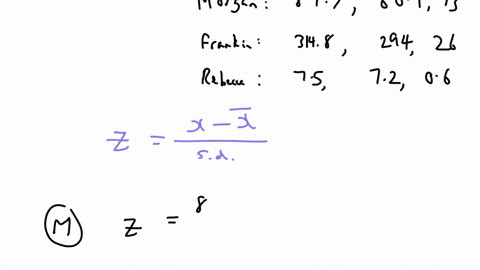 Frankin: 314.8, 294, 26
Rebecca: 7.5, 7.2, 0.6
z = x - x̅ / s.d.
M z = 8